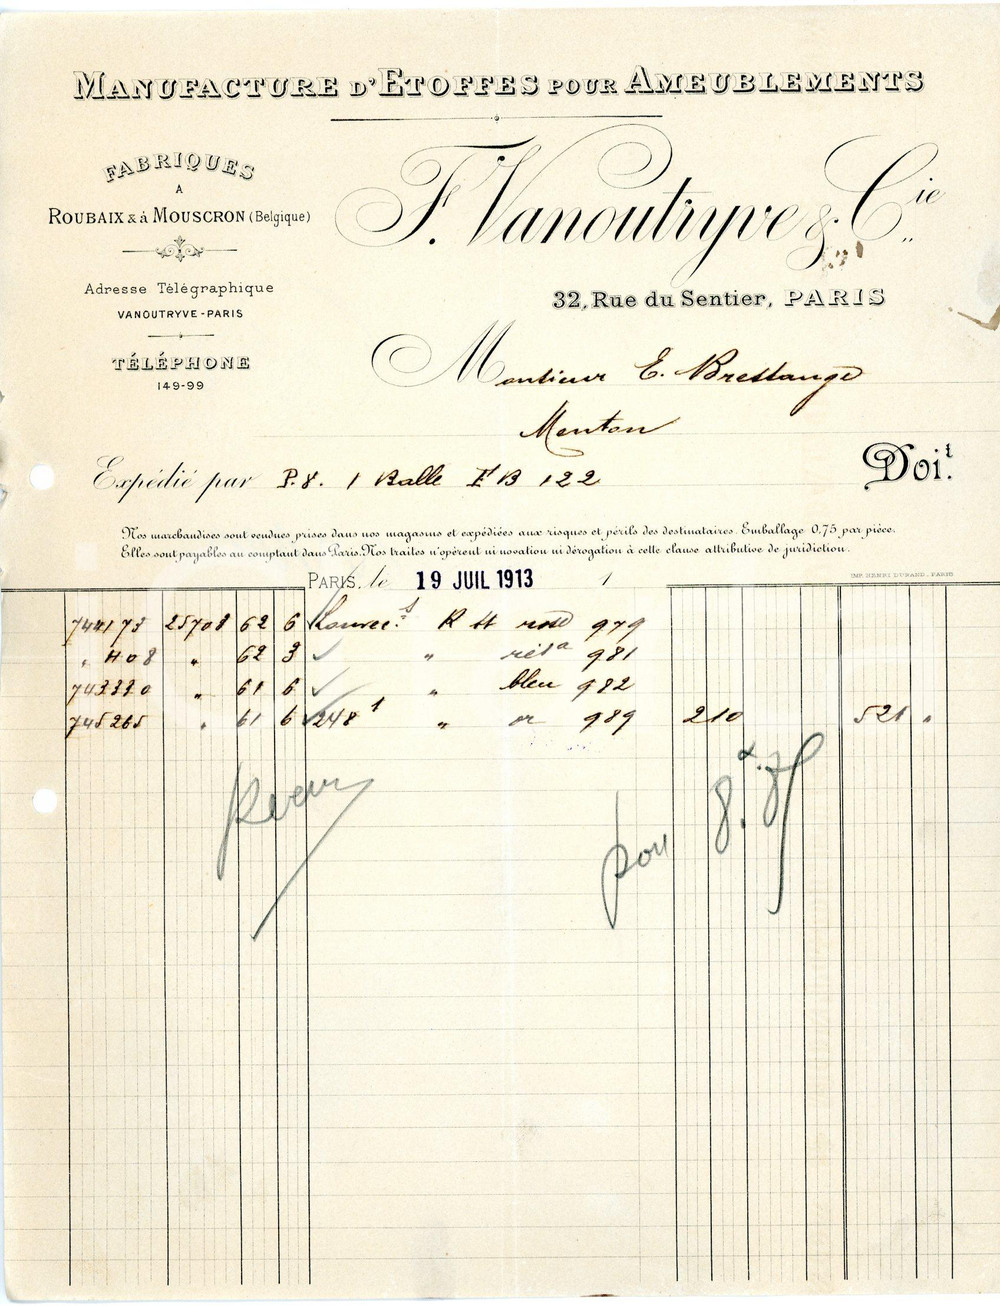 MANUFACTURE D'ETOFFES POUR AMEUBLEMENTS
FABRIQUES
A
ROUBAIX & à MOUSCRON (Belgique)
Adresse Télégraphique
VANOUTRYVE-PARIS
TÉLÉPHONE
149-99
F. Vanoutryve & Cie
32, Rue du Sentier, PARIS
Monsieur E. Brestange
Menton
Doit
Expédié par P.V. 1 Balle EB 122
Nos marchandises sont vendues prises dans nos magasins et expédiées aux risques et périls des destinataires. Emballage 0,75 par pièce.
Elles sont payables au comptant dans Paris. Nos traites n'opèrent ni novation ni dérogation à cette clause attributive de juridiction.
IMP. HENRI DURAND, PARIS
PARIS, le 19 JUIL 1913 1
744173 25708 62 6 R H 979
" 408 " 62 3 " 981
743320 " 61 6 " bleu 982
745265 " 61 6 248 " or 989 2 10 521 "
pour